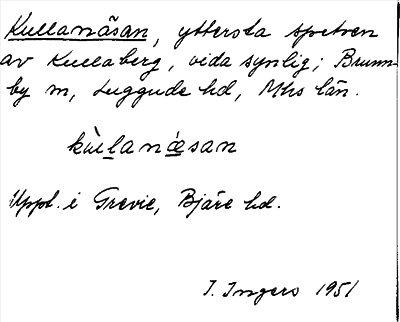 Kullanäsan, yttersta spetsen
av Kullaberg, vida synlig; Brunn-
by sn, Luggude hd, Mhs län.
kùllanǽsan
Uppl. i Grevie, Bjäre hd.
I. Ingers 1951